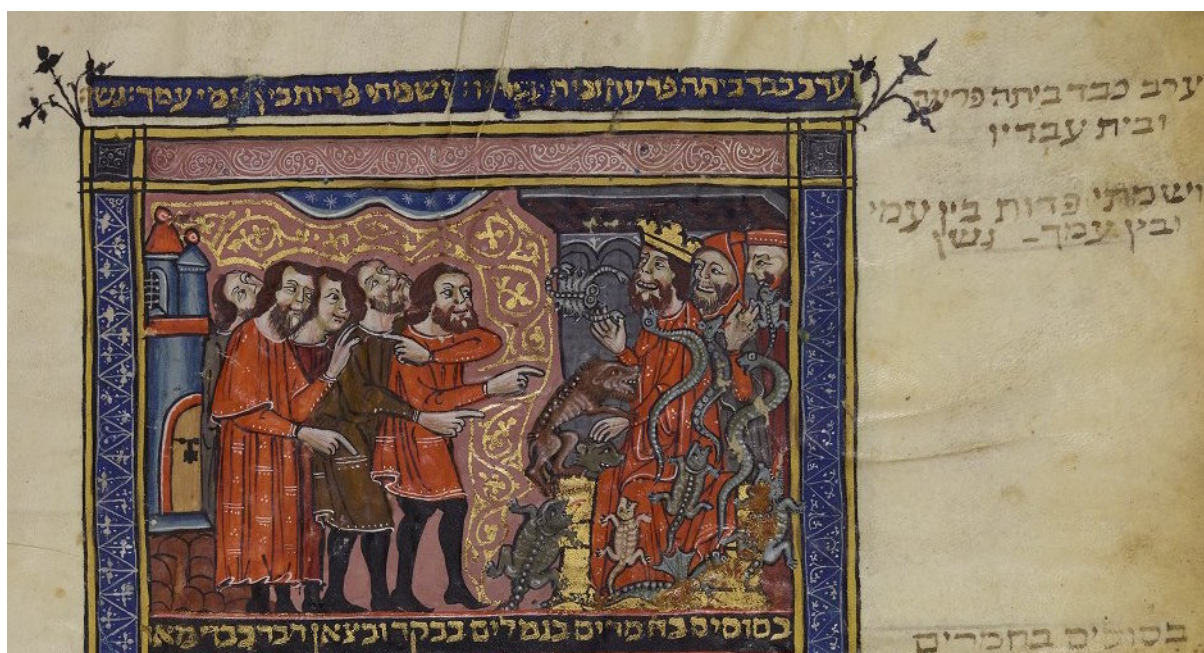 ערב כבד ביתה פרעה ובית ושמתי פדות בין עמך נשן
ערב כבד ביתה פרעה
ובית עבדיו
ושמתי פדות בין עמי
ובין עמך - נשן
בסוסים בחמרים בגמלים בבקר ובצאן דבר כבד מאד
בסוסים בחמרים